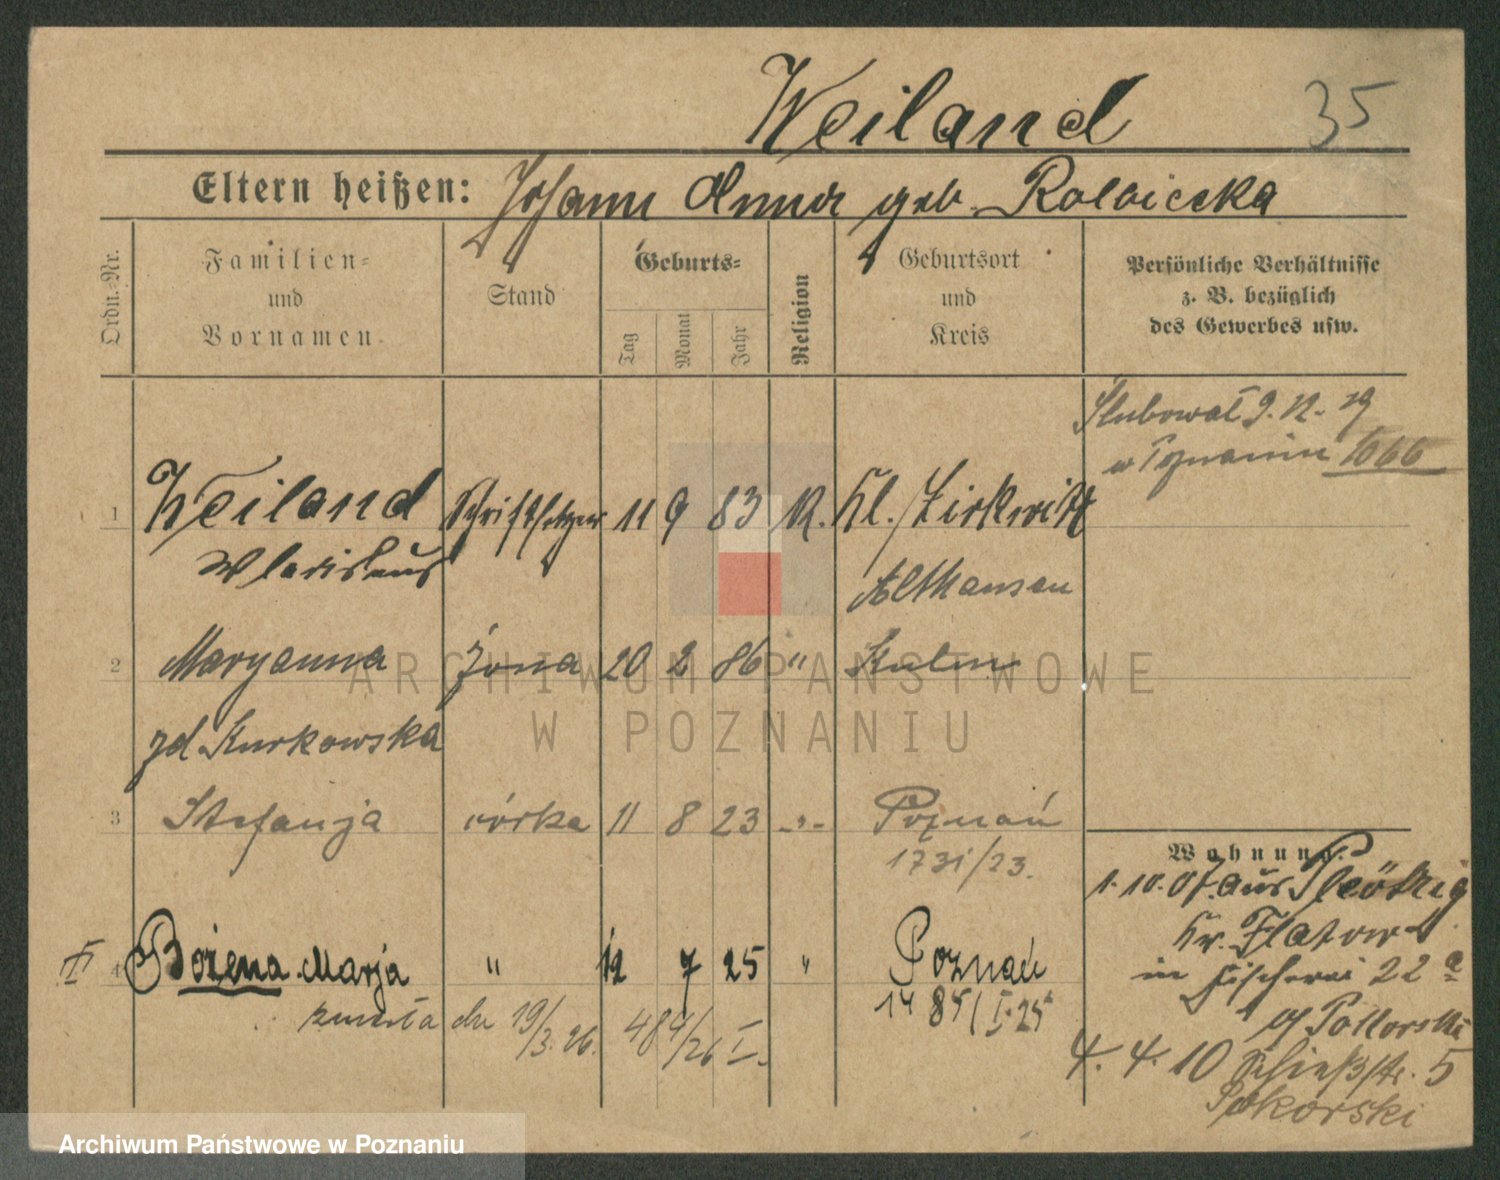 Weiland 35
Eltern heißen: Johann Anna geb. Rolbiecka
Ordn.-Nr.
Familien-
und
Vornamen.
Stand
Geburts-
Tag
Monat
Jahr
Religion
Geburtsort
und
Kreis
Persönliche Verhältnisse
z. B. bezüglich
des Gewerbes usw.
Ślubował 9. 12. 19
w Poznaniu 1066
1 Weiland Schriftsetzer 11 9 83 K. Kl. Zirkwitz
Wladislaus
Althausen
2 Maryanna żona 20 2 86 " Kulm
zd Kurkowska
3 Stefanja córka 11 8 23 -"- Poznań
1731/23.
Wohnung:
1. 10. 07. aus
Kr. Flatow
in Fischerei 22 a
4 Bożena Marja " 12 7 25 " Poznań
1485/I.25
zmarła dn 19/3.26. 484/26 I.
4. 4. 10 Schießstr. 5
Sokorski
ARCHIWUM PAŃSTWOWE
W POZNANIU
Archiwum Państwowe w Poznaniu